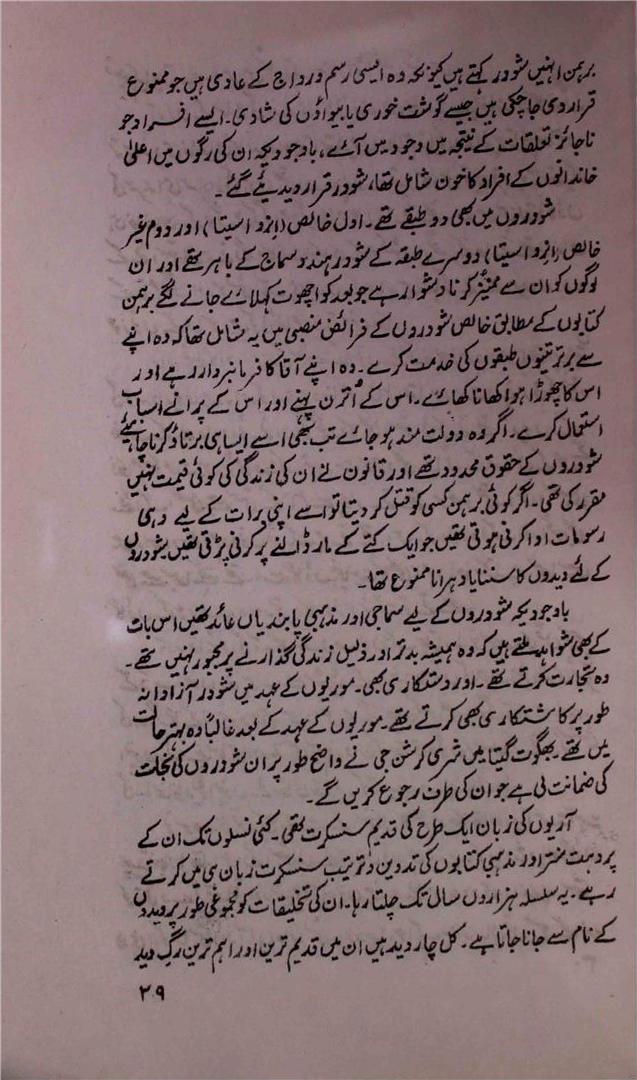 برہمن انہیں شودر کہتے ہیں کیونکہ وہ ایسی رسم و رواج کے عادی ہیں جو ممنوع
قرار دی جا چکی ہیں جیسے گوشت خوری یا بیواؤں کی شادی۔ ایسے افراد جو
ناجائز تعلقات کے نتیجہ میں وجود میں آئے، باوجودیکہ ان کی رگوں میں اعلیٰ
خاندانوں کے افراد کا خون شامل تھا، شودر قرار دیدیئے گئے۔
شودروں میں بھی دو طبقے تھے۔ اول خالص (انرو اسیتا) اور دوم غیر
خالص (انرو اسیتا) دوسرے طبقہ کے شودر ہندو سماج کے باہر تھے اور ان
لوگوں کو ان سے ممیّز کرنا دشوار ہے جو بعد کو اچھوت کہلائے جانے لگے برہمن
کتابوں کے مطابق خالص شودروں کے فرائض منصبی میں یہ شامل تھا کہ وہ اپنے
سے برتر تینوں طبقوں کی خدمت کرے۔ وہ اپنے آقا کا فرمانبردار رہے اور
اس کا چھوڑا ہوا کھانا کھائے۔ اس کے اُترن پہنے اور اس کے پرانے اسباب
استعمال کرے۔ اگر وہ دولت مند ہو جائے تب بھی اسے ایسا ہی برتاؤ کرنا چاہیئے
شودروں کے حقوق محدود تھے اور قانون نے ان کی زندگی کی کوئی قیمت نہیں
مقرر کی تھی۔ اگر کوئی برہمن کسی کو قتل کر دیتا تو اسے اپنی برات کے لیے وہی
رسومات ادا کرنی ہوتی تھیں جو ایک کتے کے مار ڈالنے پر کرنی پڑتی تھیں شودروں
کے لئے ویدوں کا سننا یا دہرانا ممنوع تھا۔
باوجودیکہ شودروں کے لیے سماجی اور مذہبی پابندیاں عائد تھیں اس بات
کے بھی شواہد ملتے ہیں کہ وہ ہمیشہ بدتر اور ذلیل زندگی گذارنے پر مجبور نہیں تھے۔
وہ تجارت کرتے تھے۔ اور دستکاری بھی۔ موریوں کے عہد میں شودر آزادانہ
طور پر کاشتکاری بھی کرتے تھے۔ موریوں کے عہد کے بعد غالباً وہ بہتر حالت
میں تھے۔ بھگوت گیتا میں شری کرشن جی نے واضح طور پر ان شودروں کی نجات
کی ضمانت لی ہے جو ان کی طرف رجوع کریں گے۔
آریوں کی زبان ایک طرح کی قدیم سنسکرت تھی۔ کئی نسلوں تک ان کے
پروہت منتر اور مذہبی کتابوں کی تدوین و ترتیب سنسکرت زبان ہی میں کرتے
رہے۔ یہ سلسلہ ہزاروں سال تک چلتا رہا۔ ان کی تخلیقات کو مجموعی طور پر ویدوں
کے نام سے جانا جاتا ہے۔ کل چار وید ہیں ان میں قدیم ترین اور اہم ترین رگ وید
۲۹